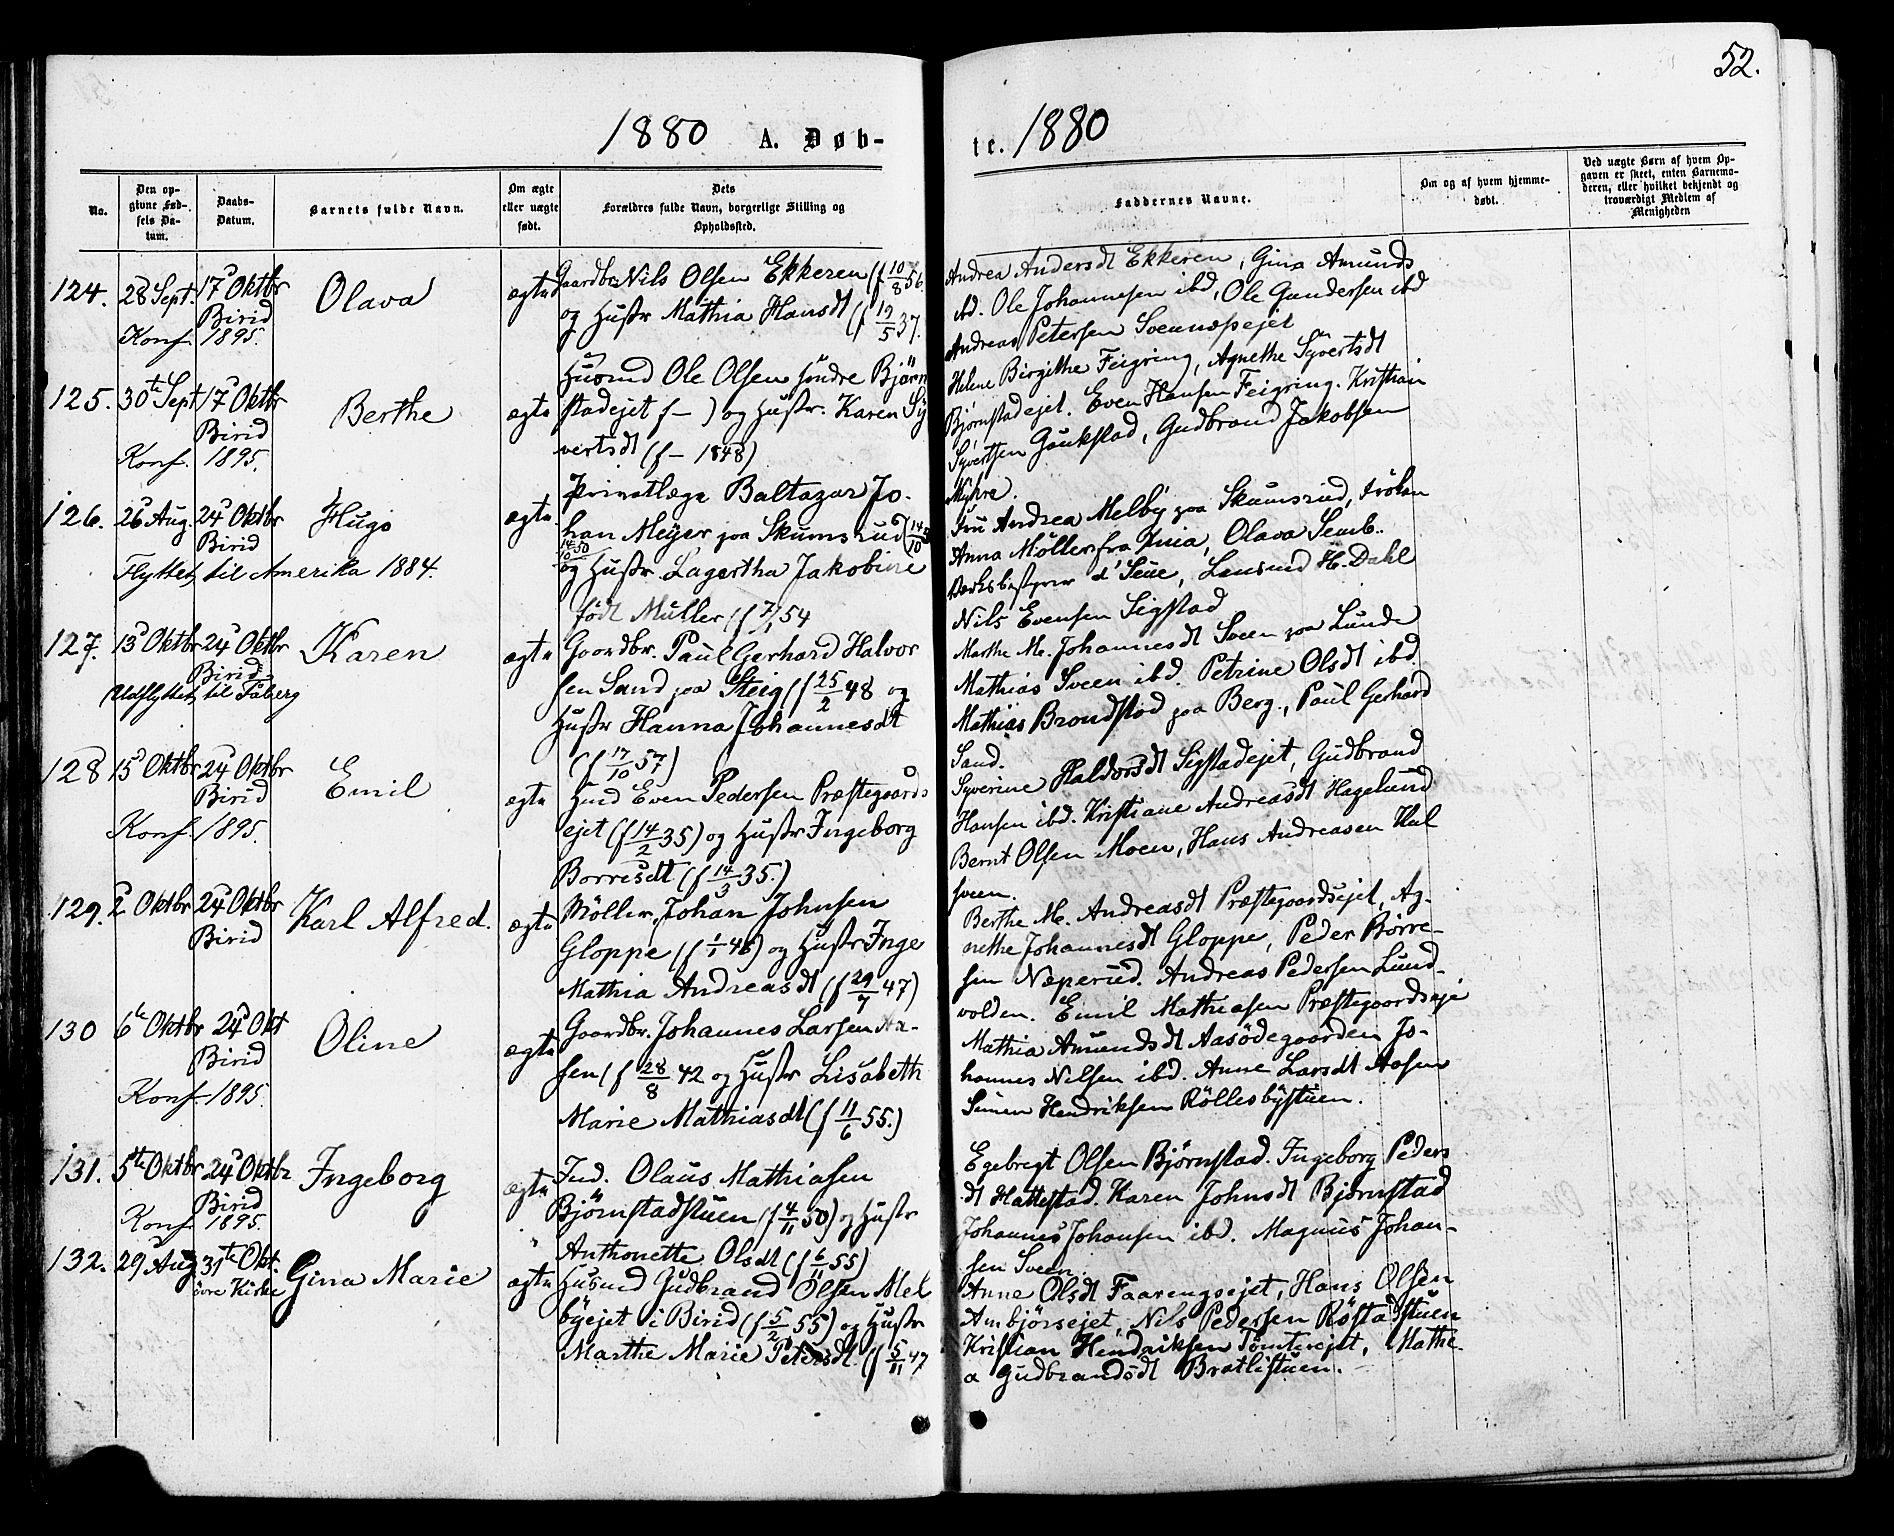 52.
1880 A. Døb-
te. 1880
No.
Den op-
givne Fød-
sels Da-
tum.
Daabs-
Datum.
Barnets fulde Navn.
Om ægte
eller uægte
født.
Dets
Forældres fulde Navn, borgerlige Stilling og
Opholdssted.
Faddernes Navne.
Om og af hvem hjemme-
døbt.
Ved uægte Børn af hvem Op-
gaven er skeet, enten Barnemo-
deren, eller hvilket bekjendt og
troværdigt Medlem af
Menigheden
124. 28 Sept. 17 Oktbr
Birid
Konf. 1895.
Olava
ægte
Gaardbr. Nils Olsen Ekkeren (f 10/8 56.
og Hustr Mathia Hansdt (f 19/5 37.
Andrea Andersdt Ekkeren, Gina Amunds
ibd. Ole Johannesen ibd, Ole Gundersen ibd
Andreas Petersen Svennæsejet
125. 30te Sept 17 Oktbr
Birid
Konf. 1895.
Berthe
ægte
Husmd Ole Olsen søndre Bjørn
stadejet f — ) og Hustr. Karen Sy
vertsdt (f — 1848)
Helene Birgithe Feigring, Agnethe Syvertsdt
Bjørnstadejet. Even Hansen Feigring. Kristian
Syvertsen Gaukstad, Gudbrand Jakobsen
Myhre.
126. 26 Aug. 24 Oktbr
Birid
Flyttet til Amerika 1884.
Hugo
ægte
Privatlæge Baltazar Jo-
han Meyer paa Skumsrud
14/10 50
og Hustr Lagertha Jakobine
født Müller (f 7/1 54
Fru Andrea Melby paa Skumsrud, Frøken
Anna Møller fra Hinia, Olava Semb..
d' Seue, Lensmd H. Dahl
Nils Evensen Sigstad
127. 13 Oktbr 24 Oktbr
Birid
Udflyttet til Faaberg
Karen
ægte
Gaardbr. Paul Gerhard Halvor
sen Sand paa Steig (f 25/2 48 og
Hustr Hanna Johannesdt
(f 17/10 57)
Marthe M. Johannesdt Sveen paa Lunde
Mathias Sveen ibd. Petrine Olsdt ibd.
Mathias Brondstad paa Berg., Paul Gerhard
Sand.
128 15 Oktbr 24 Oktbr
Birid
Konf. 1895.
Emil
ægte
Husmd Even Pedersen Præstegaards
ejet (f 14/2 35) og Hustr Ingeborg
Borresdt (f 14/3 35.)
Syverine Haldorsdt Sigstadejet, Gudbrand
Hansen ibd. Kristiane Andreasdt Hagelund
Bernt Olsen Moen, Hans Andreasen Kal
sveen.
129. 2 Oktbr 24 Oktbr
Birid
Karl Alfred.
ægte
Möller, Johan Johnsen
Gloppe (f 1/1 46) og Hustr Inge
Mathia Andreasdt (f 29/7 47)
Berthe M. Andreasdt Præstegaardsejet, Ag-
nethe Johannesdt Gloppe, Peder Børre-
sen Næperud. Andreas Pedersen Lund-
volden. Emil Mathiasen Præstegaardseje
130 6te Oktbr 24 Okt
Birid
Konf. 1895.
Oline
ægte
Gaardbr. Johannes Larsen Aa-
sen (f 28/8 42 og Hustr Lisabeth
Marie Mathiasdt (f 11/6 55.)
Mathia Amundsdt Aasødegaarden Jo-
hannes Nilsen ibd. Anne Larsdt Aasen
Simen Hendriksen Röllesbystuen.
131. 5te Oktbr 24 Oktbr
Birid
Konf 1895.
Ingeborg
ægte
Ind. Olaus Mathiasen
Bjørnstadstuen (f 4/11 50) og Hustr
Anthonette Olsdt (f 6/11 55)
Egebregt Olsen Bjørnstad. Ingeborg Peders
dt Hattestad. Karen Johnsdt Bjørnstad
Johannes Johansen ibd. Magnus Johan-
sen Sveen.
132. 29 Aug 31te Okt.
övre Kirke
Gina Marie
ægte
Husmd Gudbrand Olsen Mel
byejet i Birid (f 5/2 55) og Hustr
Marthe Marie Petersdt. (f 5/11 47
Anne Olsdt Faarengsejet, Hans Olsen
Ambjörsejet, Nils Pedersen Röstadstuen
Kristian Hendriksen Tomterejet, Mathe-
a Gudbrandsdt Bratlistuen.